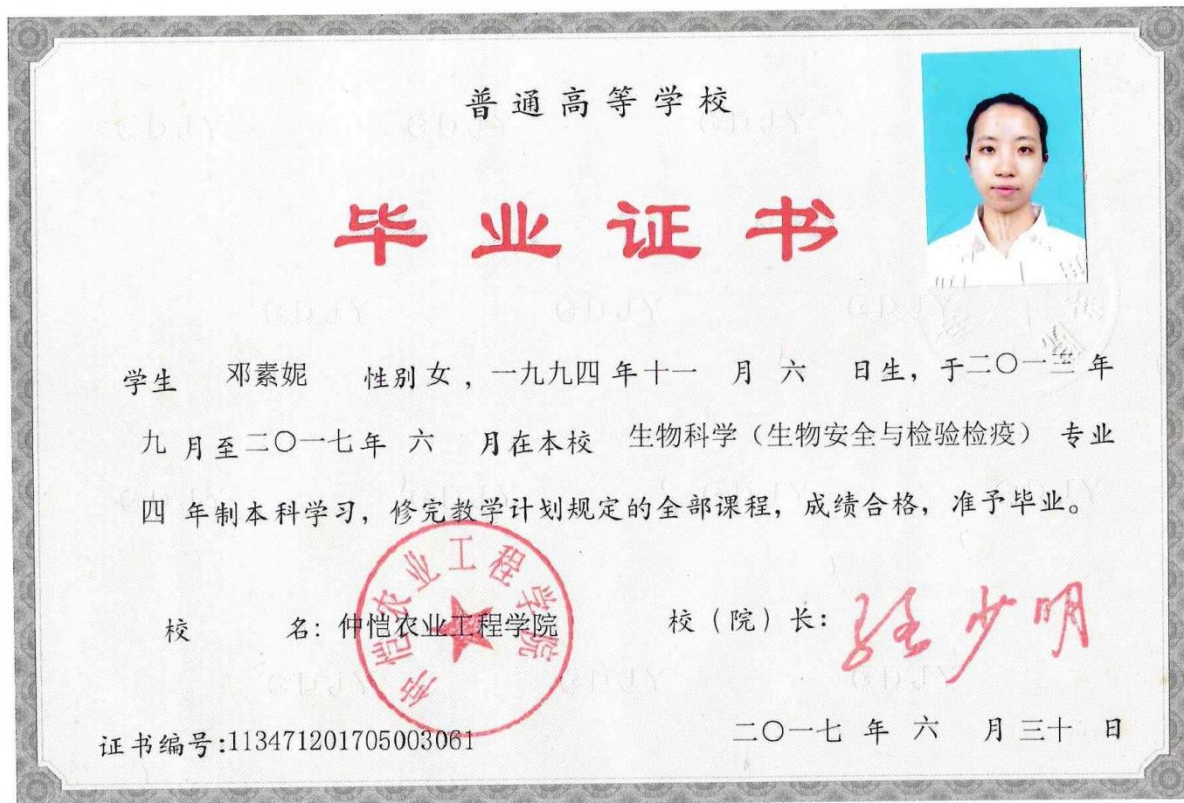 普通高等学校
毕业证书
学生 邓素妮 性别 女 ，一九九四 年 十一 月 六 日生，于二〇一三 年
九 月至二〇一七年 六 月在本校 生物科学（生物安全与检验检疫） 专业
四 年制本科学习，修完教学计划规定的全部课程，成绩合格，准予毕业。
仲恺农业工程学院
校 名：仲恺农业工程学院 校（院）长：
证书编号:113471201705003061 二〇一七 年 六 月 三十 日